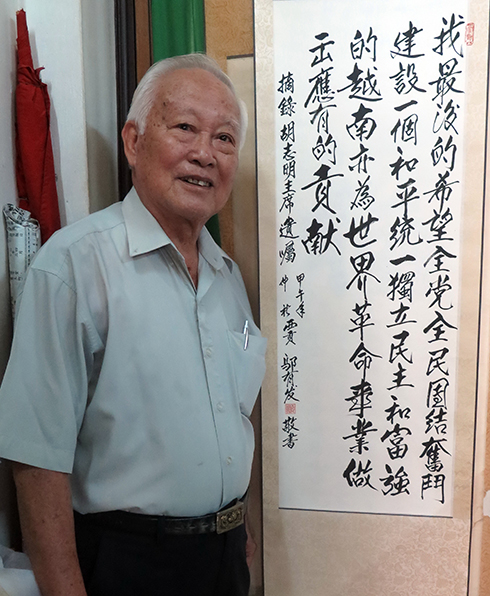 我最後的希望全党全民團结奮鬥
建設一個和平統一獨立民主和富強
的越南亦為世界革命事業做
出應有的貢献
摘錄胡志明主席遺囑
甲午年
敬書